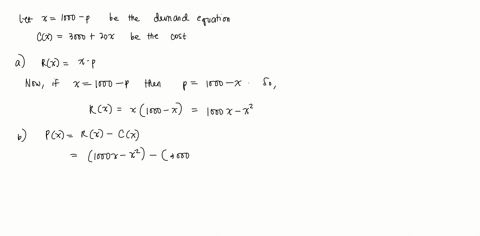 Let x = 1000 - p be the demand equation
C(x) = 3000 + 20x be the cost
a) R(x) = x·p
Now, if x = 1000 - p then p = 1000 - x. So,
R(x) = x(1000 - x) = 1000x - x²
b) P(x) = R(x) - C(x)
= (1000x - x²) - (3000